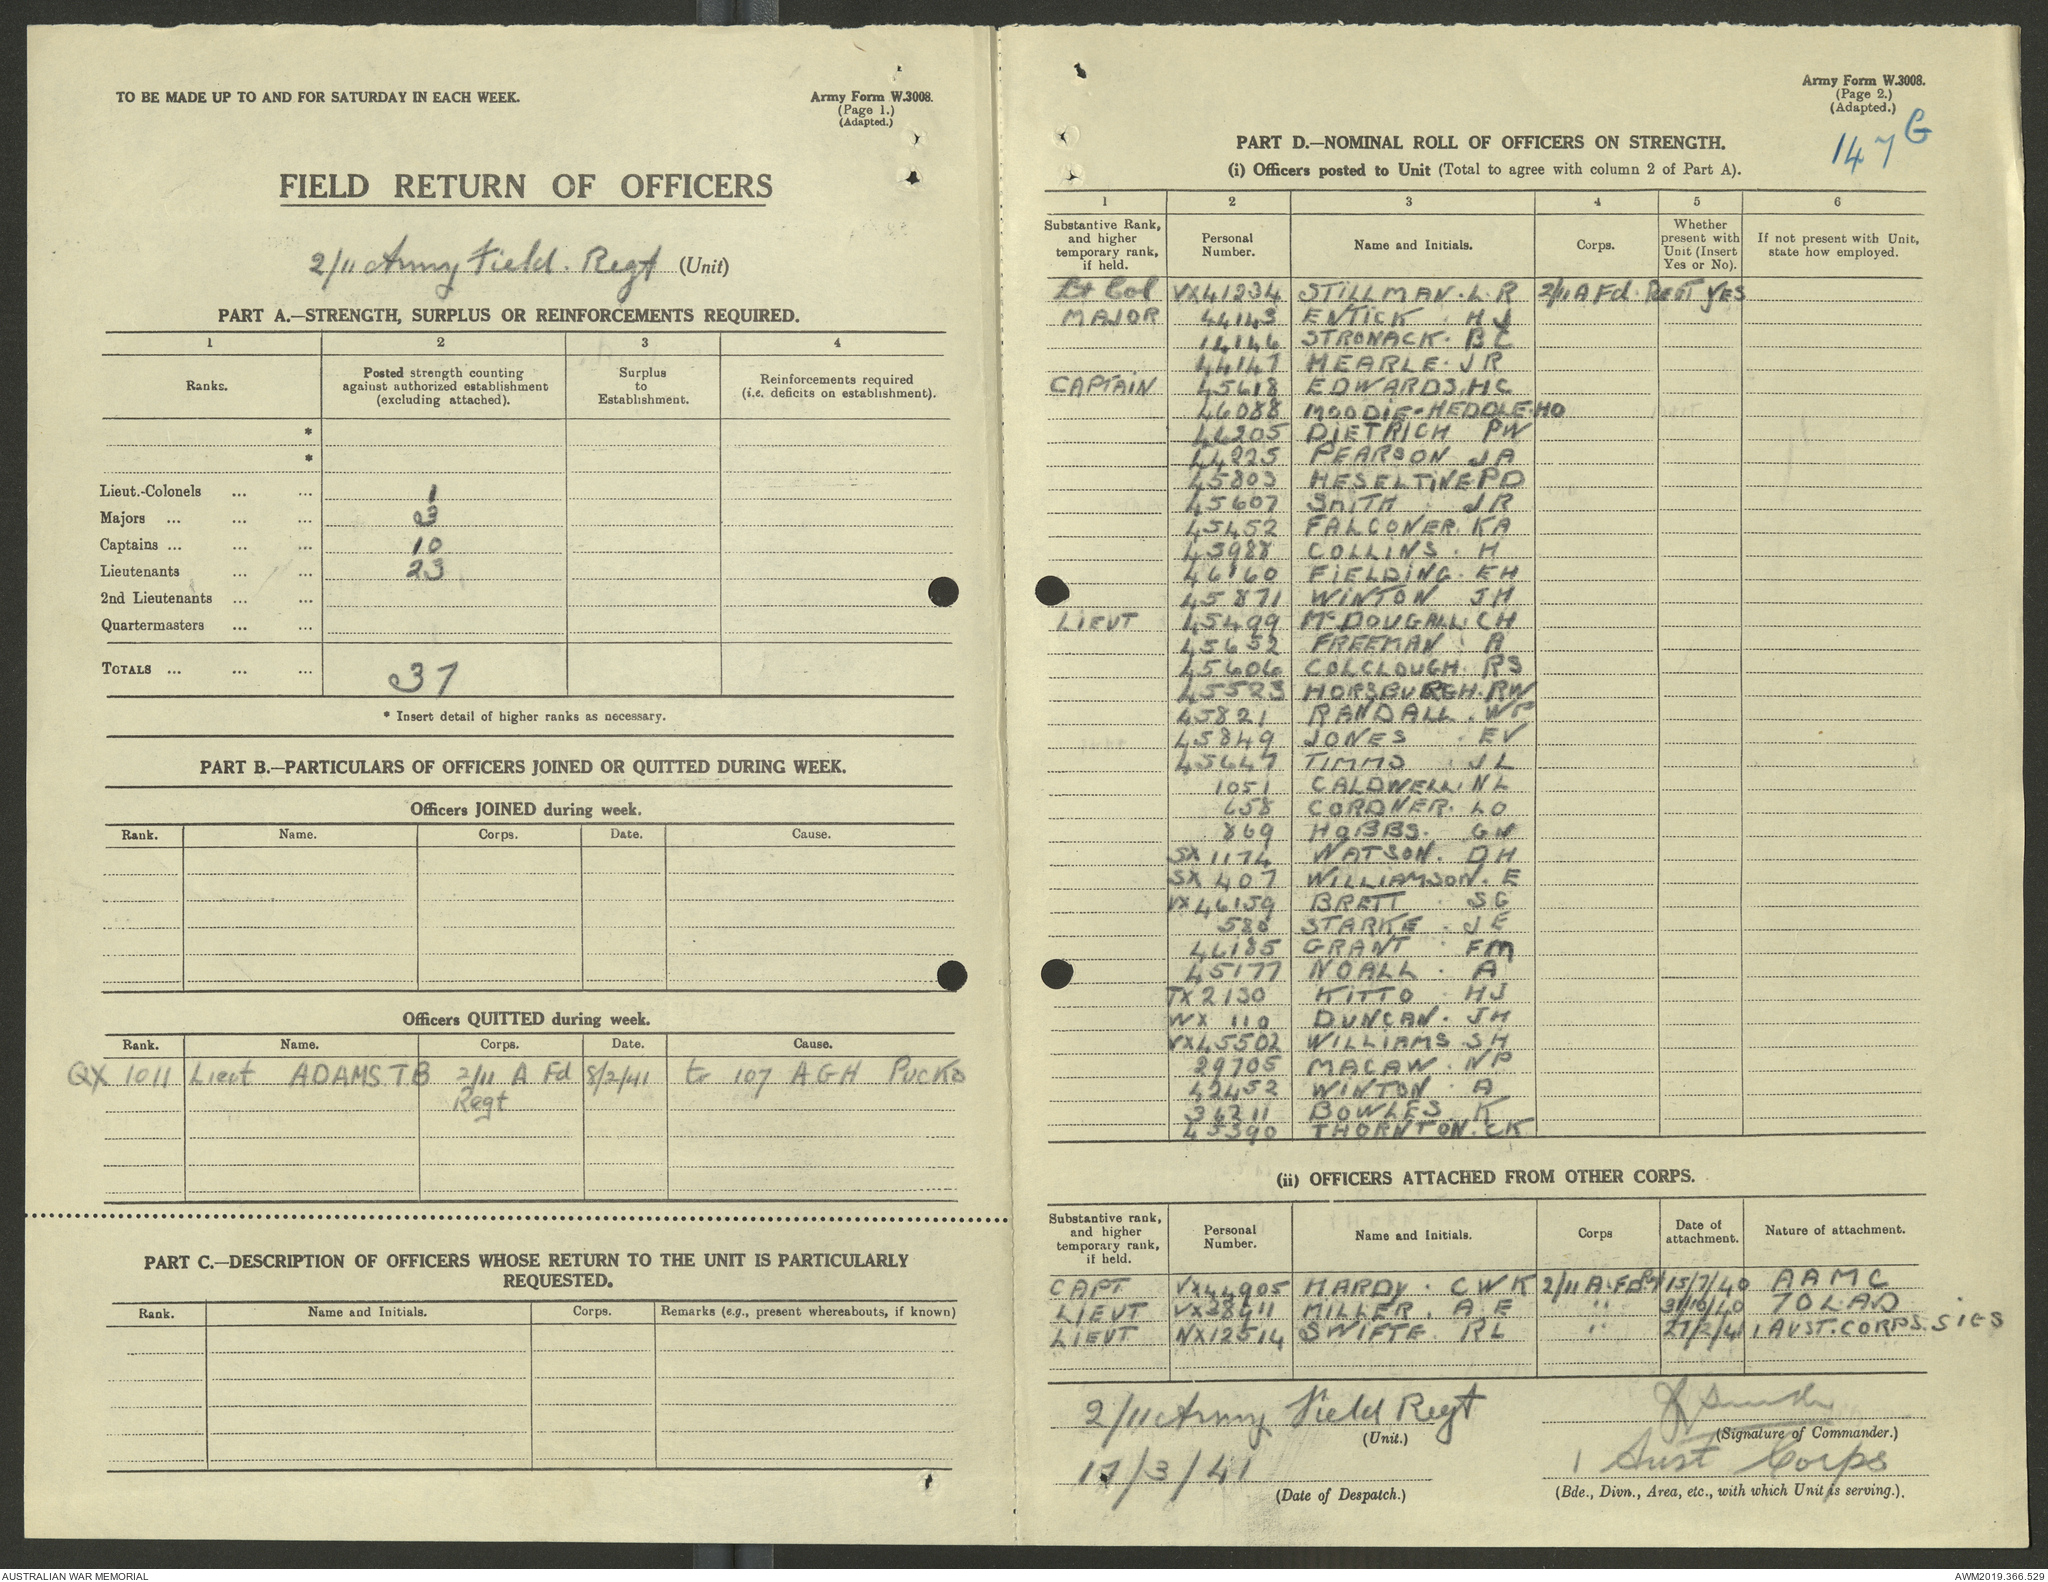 TO BE MADE UP TO AND FOR SATURDAY IN EACH WEEK.
Army Form W.3008.
(Page 1.)
(Adapted.)
FIELD RETURN OF OFFICERS
2/11 Army Field. Regt (Unit)
PART A.—STRENGTH, SURPLUS OR REINFORCEMENTS REQUIRED.
1 2 3 4
Ranks. Posted strength counting against authorized establishment (excluding attached). Surplus to Establishment. Reinforcements required (i.e. deficits on establishment).
*
*
Lieut.-Colonels ... ... 1
Majors ... ... ... 3
Captains ... ... ... 10
Lieutenants ... ... 23
2nd Lieutenants ... ...
Quartermasters ... ...
TOTALS ... ... ... 37
* Insert detail of higher ranks as necessary.
PART B.—PARTICULARS OF OFFICERS JOINED OR QUITTED DURING WEEK.
Officers JOINED during week.
Rank. Name. Corps. Date. Cause.
Officers QUITTED during week.
Rank. Name. Corps. Date. Cause.
QX 1011 Lieut ADAMS T B 2/11 A Fd 8/2/41 to 107 AGH PUCKA
Regt
PART C.—DESCRIPTION OF OFFICERS WHOSE RETURN TO THE UNIT IS PARTICULARLY
REQUESTED.
Rank. Name and Initials. Corps. Remarks (e.g., present whereabouts, if known)
Army Form W.3008.
(Page 2.)
(Adapted.)
147 G
PART D.—NOMINAL ROLL OF OFFICERS ON STRENGTH.
(i) Officers posted to Unit (Total to agree with column 2 of Part A).
1 2 3 4 5 6
Substantive Rank, and higher temporary rank, if held. Personal Number. Name and Initials. Corps. Whether present with Unit (Insert Yes or No). If not present with Unit, state how employed.
Lt Col VX41234 STILLMAN. L. R 2/11 A Fd. REGT YES
MAJOR 44143 ENTICK. HJ
14146 STRONACK. BC
44147 HEARLE. JR
CAPTAIN 45618 EDWARDS. HC
46088 MOODIE-HEDDLE. HO
44205 DIETRICH PW
44225 PEARSON JA
45803 HESELTINE PD
45607 SMITH JR
45452 FALCONER. KA
45988 COLLINS. H
46160 FIELDING. EH
45871 WINTON JH
LIEUT 45499 McDOUGALL. CH
45652 FREEMAN. A
45606 COLCLOUGH. RS
45523 HORSBURGH. RW
45821 RANDALL. WP
45849 JONES. EV
45647 TIMMS. JL
1051 CALDWELL. NL
658 CORDNER. LO
869 HOBBS. GN
SX 1174 WATSON. DH
SX 407 WILLIAMSON. E
VX 46159 BRETT. SG
580 STARKE. JE
46185 GRANT. FM
45177 NOALL. A
TX 2130 KITTO. HJ
WX 110 DUNCAN. JH
VX45502 WILLIAMS SH
29705 MACAW. NP
42452 WINTON. A
36211 BOWLES. K
45390 THORNTON. CK
(ii) OFFICERS ATTACHED FROM OTHER CORPS.
Substantive rank, and higher temporary rank, if held. Personal Number. Name and Initials. Corps Date of attachment. Nature of attachment.
CAPT VX44905 HARDY. C W K 2/11 A. Fd Rgt 15/7/40 A A M C
LIEUT VX38411 MILLER. A E " 31/10/40 70 LAD
LIEUT NX12514 SWIFTE. RL " 27/2/41 1 AUST. CORPS. SIGS
2/11 Army Field Regt
(Unit.)
(Signature of Commander.)
17/3/41 1 Aust Corps
(Date of Despatch.) (Bde., Divn., Area, etc., with which Unit is serving.).
AUSTRALIAN WAR MEMORIAL
AWM2019.366.529